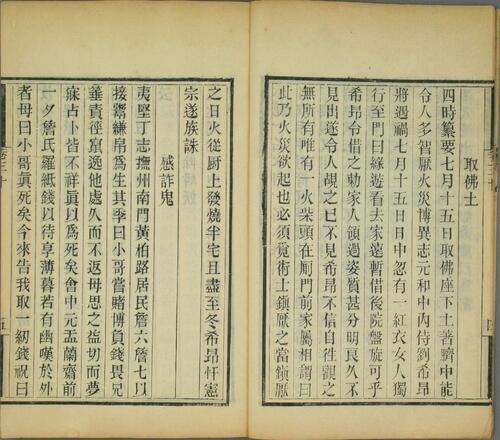 取佛土
四時纂要七月十五日取佛座下土著臍中能
令人多智厭火災博異志元和中內侍劉希昂
將遇禍七月十五日日中忽有一紅衣女人獨
行至門曰緣遊看去家遠暫借後院盤旋可乎
希昂令借之勅家人領過姿質甚分明良久不
見出遂令人覘之已不見希昂不信自往觀之
無所有唯有一火柴頭在厠門前家屬相謂曰
此乃火災欲起也必須覓術士鎮厭之當鎮厭
之日火從厨上發燒半宅且盡至冬希昂忤憲
宗遂族誅
感詐鬼
夷堅丁志撫州南門黃柏路居民詹六詹七以
接鬻縑帛爲生其季曰小哥嘗賭博負錢畏兄
箠責徑竄逸他處久而不返母思之益切而夢
寐占卜皆不祥眞以爲死矣會中元盂蘭齋前
一夕詹氏羅紙錢以待享薄暮若有幽嘆於外
者母曰小哥眞死矣今來告我取一紉錢祝曰
卷三十
五
四